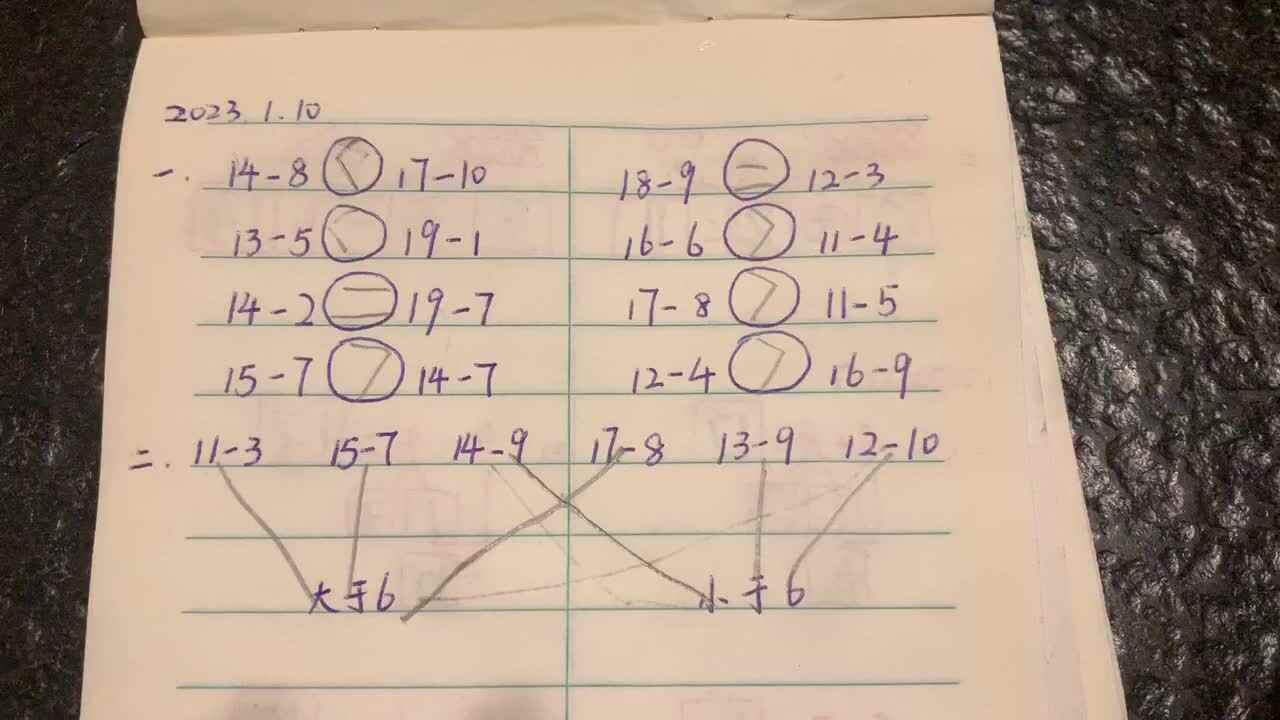 2023 1.10
一. 14-8 < 17-10 18-9 = 12-3
13-5 < 19-1 16-6 > 11-4
14-2 = 19-7 17-8 > 11-5
15-7 > 14-7 12-4 > 16-9
二. 11-3 15-7 14-9 17-8 13-9 12-10
大于6 小于6